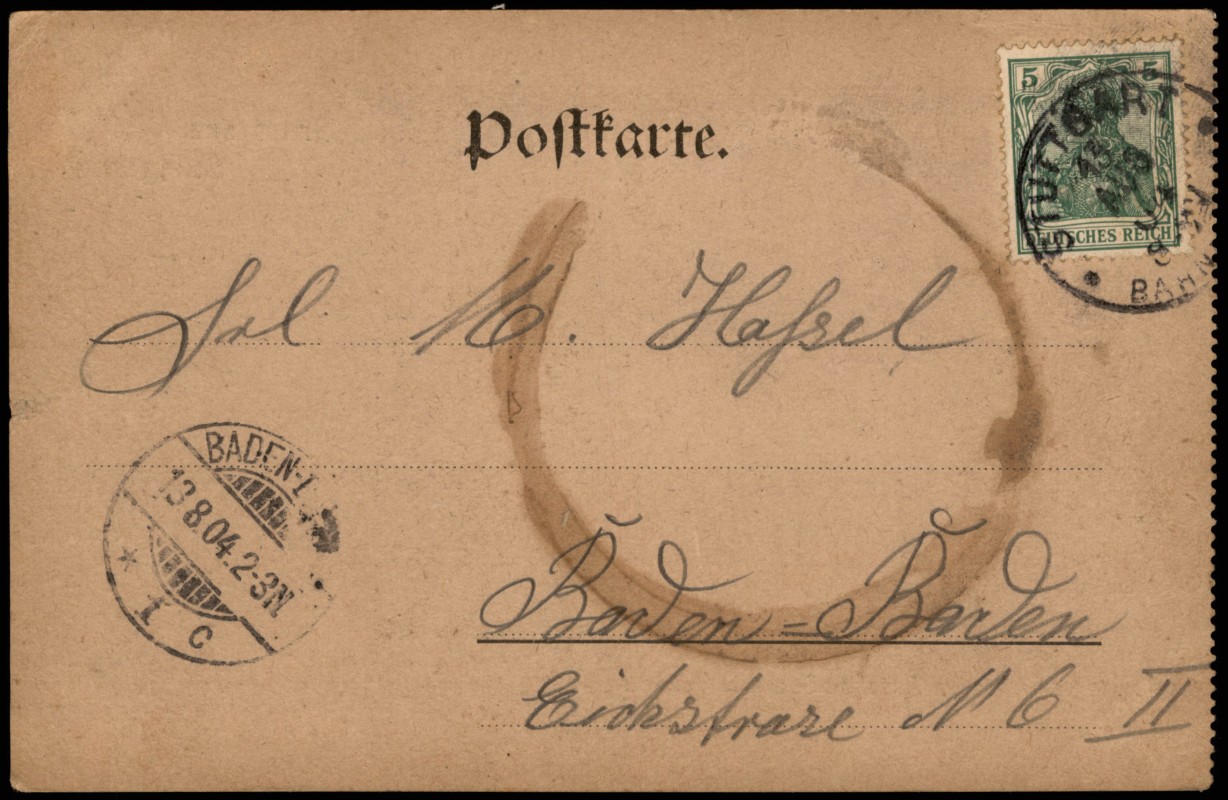 Postkarte.
5 5
DEUTSCHES REICH
STUTTGART
13
Frl M. Hassel
BADEN-
13.8.04.2-3N
1 c
Baden-Baden
Eichstrase N 6 II